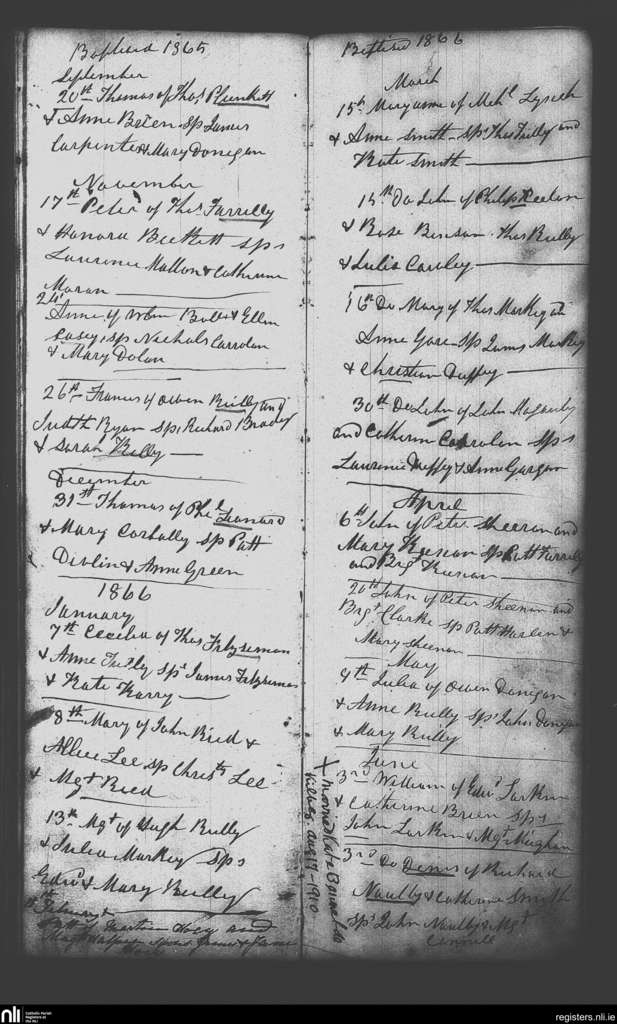 Baptised 1865
September
20th Thomas of Thos Plunkett
& Anne Sps James
Carpenter & Mary Donegan
November
17th Peter of Thos Farrelly
& Honora Beckett sps
Laurence Mallon & Catherine
Moran
24
Anne of Wm & Ellen
Casey, sps Nicholas Carrolan
& Mary Dolan
26th Francis of Owen Reilly and
Judith Ryan sps Richard Brady
& Sarah Reilly
December
31st Thomas of Leonard
& Mary Corbally sp Patt
Divlin & Anne Green
1866
January
7th Cecelia of Thos Fitzsimon
& Anne Tully Sps James Fitzsimons
& Kate Karry
8th Mary of John Ried &
Lee sp Christn Lee
& Mgt Ried
13th Mgt of Hugh Reilly
& Julia Markey Sps
Edwd & Mary Reilly
February
of and
Baptised 1866
March
15th Maryanne of Mchl Lynch
& Anne Smith - Sps Thos Tully and
Kate Smith
15th Do John of Philip Keelan
& Rose Thos Reilly
& Julia Cawley
16th Do Mary of Thos Markey &
Anne Gore Sp James Markey
& Christian Duffy
30th Do John of John
and Catherin Carrolan Sps
Laurence Duffy & Anne Gargan
April
6th John of Peter Sheeran and
Mary Keenan Sp Patt Farrelly
and Brgt Keenan
20th John of Peter Sheenan and
Brgt Clarke sp Patt &
Mary Sheenan
May
9th Julia of Owen Donigan
& Anne Reilly Sps John Donigan
& Mary Reilly
June
3rd William of Edwd Larkin
& Catherine Breen Sps
John Larkin & Mgt Meighan
3rd Do Denis of Richard
Naulty & Catherine Smith
Sps John Naulty & Mgt
Connell
X Married Kate
Aug 17 - 1910
nli
Catholic Parish
Registers at
the NLI
registers.nli.ie